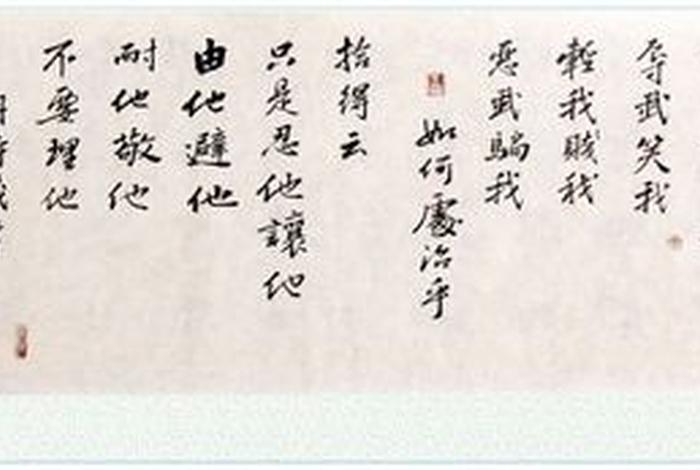 辱我笑我
輕我賤我
惡我騙我
如何處治乎
拾得云
只是忍他讓他
由他避他
耐他敬他
不要理他